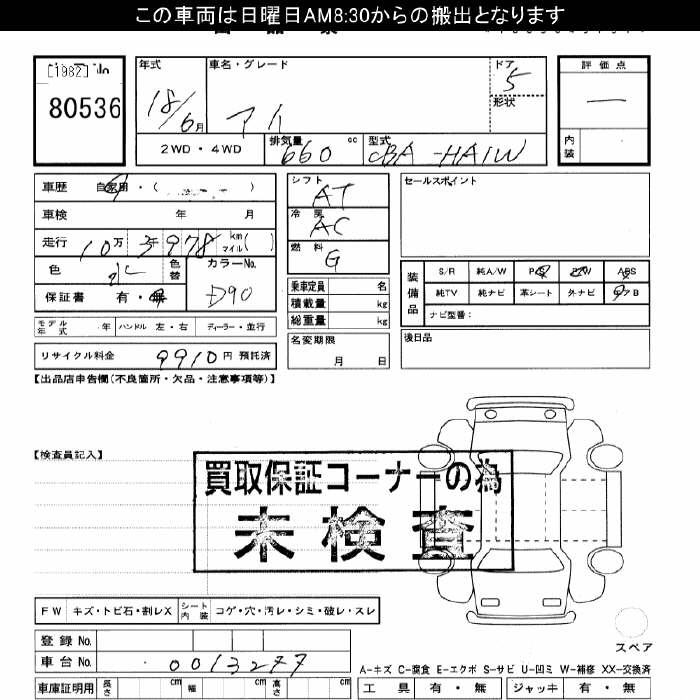 この車両は日曜日AM8:30からの搬出となります
[1982]
80536
年式 車名・グレード ドア 評価点
18/6月 アイ 5 —
形状
2WD・4WD 排気量 660 cc 型式 CBA-HA1W 内装
車歴 自家用・( ) シフト AT セールスポイント
車検 年 月 冷房 AC
走行 10万3千978 km マイル( ) 燃料 G
色 水 色替 カラーNo. D90
保証書 有・無
乗車定員 名
積載量 kg
総重量 kg
装備品 S/R 純A/W P/S P/W ABS
純TV 純ナビ 革シート 外ナビ エアB
ナビ型番:
モデル年式 年 ハンドル 左・右 ディーラー・並行
名変期限 月 日
後日品
リサイクル料金 9910円 預託済
【出品店申告欄(不良箇所・欠品・注意事項等)】
【検査員記入】
買取保証コーナーの為
未検査
FW キズ・トビ石・割レX シート内装 コゲ・穴・汚レ・シミ・破レ・スレ
登録No.
車台No. 0013277
スペア
A-キズ C-腐食 E-エクボ S-サビ U-凹ミ W-補修 XX-交換済
車庫証明用 長さ cm 幅 cm 高さ cm 工具 有・無 ジャッキ 有・無